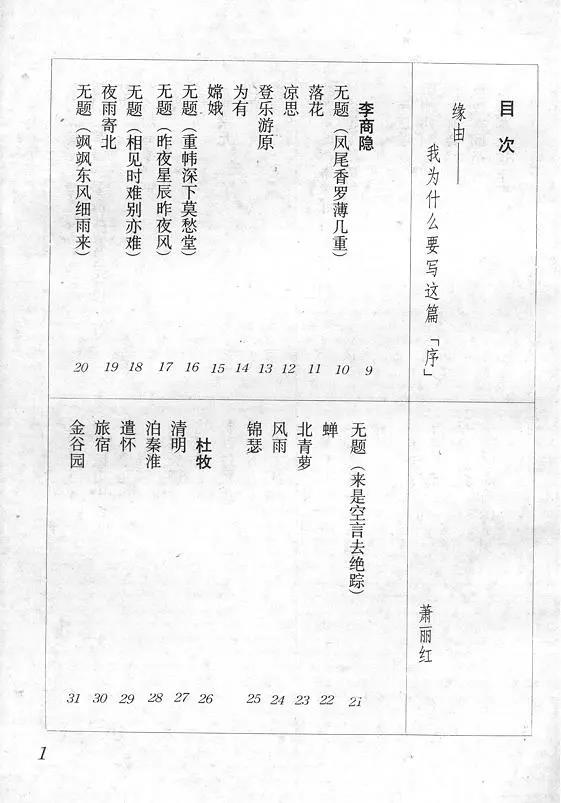 目次
缘由——
我为什么要写这篇「序」
萧丽红
李商隐 9
无题（凤尾香罗薄几重） 10
落花 11
凉思 12
登乐游原 13
为有 14
嫦娥 15
无题（重帏深下莫愁堂） 16
无题（昨夜星辰昨夜风） 17
无题（相见时难别亦难） 18
夜雨寄北 19
无题（飒飒东风细雨来） 20
无题（来是空言去绝踪） 21
蝉 22
北青萝 23
风雨 24
锦瑟 25
杜牧 26
清明 27
泊秦淮 28
遣怀 29
旅宿 30
金谷园 31
1